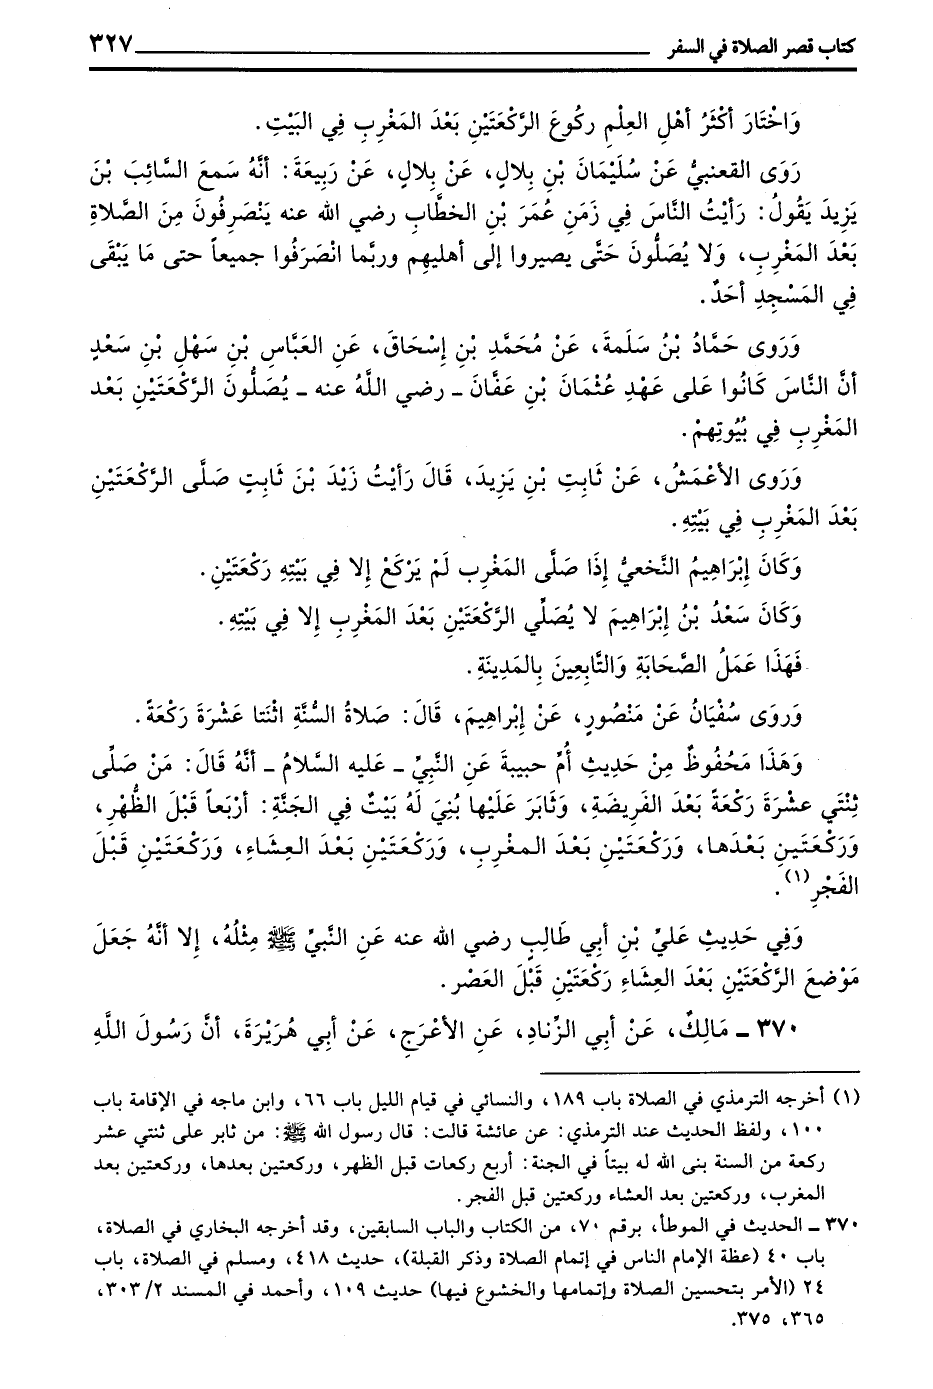 كتاب قصر الصلاة في السفر ٣٢٧
وَاخْتَارَ أكْثَرُ أهْلِ العِلْمِ ركُوعَ الرَّكْعَتَيْنِ بَعْدَ المَغْرِبِ فِي البَيْتِ.
رَوَى القعنبيُّ عَنْ سُلَيْمَانَ بْنِ بِلالٍ، عَنْ بِلالٍ، عَنْ رَبِيعَةَ: أنَّهُ سَمعَ السَّائِبَ بْنَ
يَزِيدَ يَقُولُ: رَأيْتُ النَّاسَ فِي زَمَنِ عُمَرَ بْنِ الخطَّابِ رضي الله عنه يَنْصَرِفُونَ مِنَ الصَّلاةِ
بَعْدَ المَغْرِبِ، وَلا يُصَلُّونَ حَتَّى يصيروا إلى أهليهم وربَّما انْصَرَفُوا جميعاً حتى مَا يَبْقَى
فِي المَسْجِدِ أحَدٌ.
وَرَوَى حَمَّادُ بْنُ سَلَمةَ، عَنْ مُحَمَّدِ بْنِ إسْحَاقَ، عَنِ العَبَّاسِ بْنِ سَهْلِ بْنِ سَعْدٍ
أنَّ النَّاسَ كَانُوا عَلى عَهْدِ عُثْمَانَ بْنِ عَفَّانَ ـ رضي اللَّهُ عنه ـ يُصَلُّونَ الرَّكْعَتَيْنِ بَعْد
المَغْرِبِ فِي بُيُوتِهِمْ.
وَرَوَى الأعْمَشُ، عَنْ ثَابِتِ بْنِ يَزِيدَ، قَالَ رَأيْتُ زَيْدَ بْنَ ثَابِتٍ صَلَّى الرَّكْعَتَيْنِ
بَعْدَ المَغْرِبِ فِي بَيْتِهِ.
وَكَانَ إبْرَاهِيمُ النَّخعيُّ إذَا صَلَّى المَغْرِب لَمْ يَرْكَعْ إلا فِي بَيْتِهِ رَكْعَتَيْنِ.
وَكَانَ سَعْدُ بْنُ إبْرَاهِيمَ لا يُصَلِّي الرَّكْعَتَيْنِ بَعْدَ المَغْرِبِ إلا فِي بَيْتِهِ.
فَهَذَا عَمَلُ الصَّحَابَةِ وَالتَّابِعِينَ بِالمَدِينَةِ.
وَرَوَى سُفْيَانُ عَنْ مَنْصُورٍ، عَنْ إبْرَاهِيمَ، قَالَ: صَلاةُ السُّنَّةِ اثْنَتا عَشْرَةَ رَكْعَةً.
وَهَذَا مَحْفُوظٌ مِنْ حَدِيثِ أُمِّ حبيبةَ عَنِ النَّبِيِّ ـ عَليه السَّلامُ ـ أنَّهُ قَالَ: مَنْ صَلَّى
ثِنْتَي عشْرَةَ رَكْعَةً بَعْدَ الفَرِيضَةِ، وَثَابَرَ عَلَيْها بُنِيَ لَهُ بَيْتٌ فِي الجَنَّةِ: أرْبَعاً قَبْلَ الظُّهْرِ،
وَرَكْعَتَينِ بَعْدَها، وَرَكْعَتَيْنِ بَعْدَ المغرِبِ، وَرَكْعَتَيْنِ بَعْدَ العِشَاءِ، وَرَكْعَتَيْنِ قَبْلَ
الفَجْرِ(١).
وَفِي حَدِيثِ عَليِّ بْنِ أبي طَالِبٍ رضي الله عنه عَنِ النَّبيِّ ﷺ مِثْلُهُ، إلا أنَّهُ جَعَلَ
مَوْضعَ الرَّكْعَتَيْنِ بَعْدَ العِشَاءِ رَكْعَتَيْنِ قَبْلَ العَصْرِ.
٣٧٠ ـ مَالِكٌ، عَنْ أبِي الزِّنادِ، عَنِ الأعْرَجِ، عَنْ أبِي هُرَيْرَةَ، أنَّ رَسُولَ اللَّهِ
(١) أخرجه الترمذي في الصلاة باب ١٨٩، والنسائي في قيام الليل باب ٦٦، وابن ماجه في الإقامة باب
١٠٠، ولفظ الحديث عند الترمذي: عن عائشة قالت: قال رسول الله ﷺ: من ثابر على ثنتي عشر
ركعة من السنة بنى الله له بيتاً في الجنة: أربع ركعات قبل الظهر، وركعتين بعدها، وركعتين بعد
المغرب، وركعتين بعد العشاء وركعتين قبل الفجر.
٣٧٠ ـ الحديث في الموطأ، برقم ٧٠، من الكتاب والباب السابقين، وقد أخرجه البخاري في الصلاة،
باب ٤٠ (عظة الإمام الناس في إتمام الصلاة وذكر القبلة)، حديث ٤١٨، ومسلم في الصلاة، باب
٢٤ (الأمر بتحسين الصلاة وإتمامها والخشوع فيها) حديث ١٠٩، وأحمد في المسند ٢/ ٣٠٣،
٣٦٥، ٣٧٥.